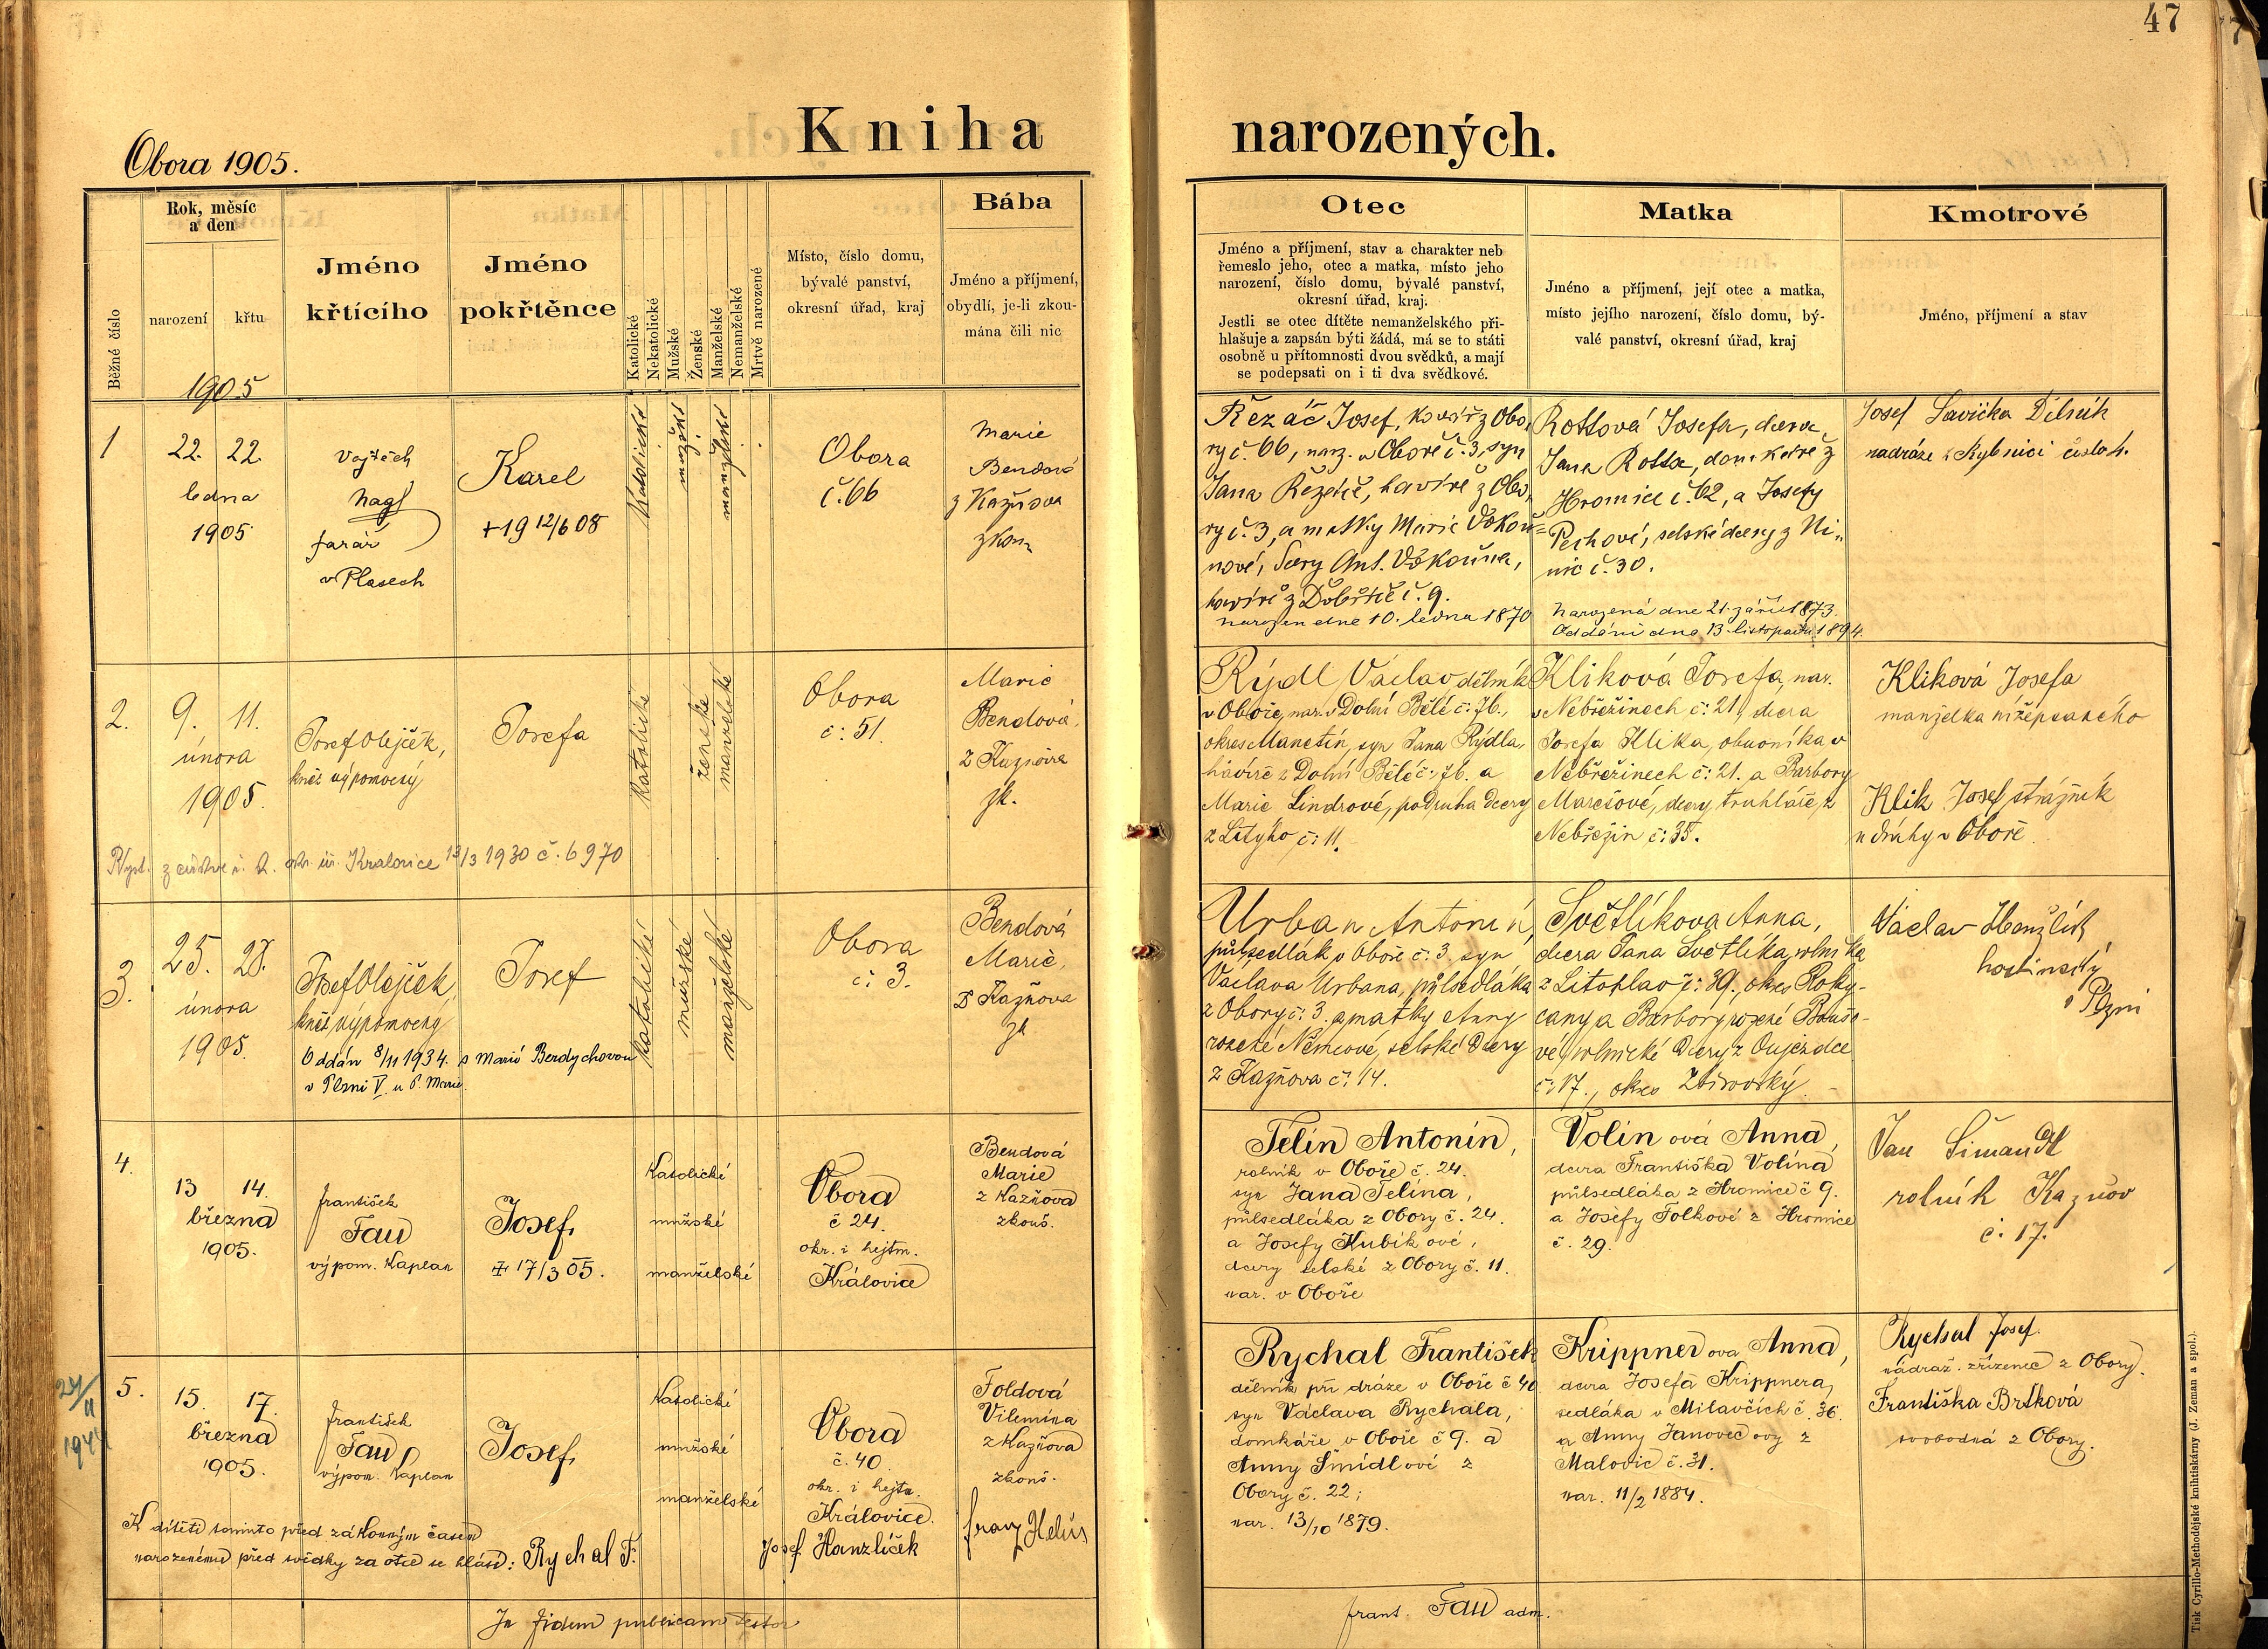 47
Kniha narozených.
Obora 1905.
Běžné číslo
Rok, měsíc
a den
narození
křtu
Jméno
křtícího
Jméno
pokřtěnce
Katolické
Nekatolické
Mužské
Ženské
Manželské
Nemanželské
Mrtvě narozené
Místo, číslo domu,
bývalé panství,
okresní úřad, kraj
Bába
Jméno a příjmení,
obydlí, je-li zkou-
mána čili nic
Otec
Jméno a příjmení, stav a charakter neb
řemeslo jeho, otec a matka, místo jeho
narození, číslo domu, bývalé panství,
okresní úřad, kraj.
Jestli se otec dítěte nemanželského při-
hlašuje a zapsán býti žádá, má se to státi
osobně u přítomnosti dvou svědků, a mají
se podepsati on i ti dva svědkové.
Matka
Jméno a příjmení, její otec a matka,
místo jejího narození, číslo domu, bý-
valé panství, okresní úřad, kraj
Kmotrové
Jméno, příjmení a stav
1905
1
22. 22.
ledna
1905
Vojtěch
Nagl
farář
v Plasech
Karel
+ 19 12/6 08
katolické
mužské
manželské
Obora
č. 66
Marie
Bendová
z Kažňova
zkou.
Řezáč Josef, kovář z Obo,
ry č. 66, narz. v Oboře č. 3, syn
Jana Řezáče, havíře z Obo,
ry č. 3, a matky Marie
nové, dcery Ant.
havíře z č. 9.
narozen dne 10. ledna 1870
Rottová Josefa, dcera
Jana Rotta, domkáře z
Hromice č. 62, a Josefy
Pechové, selské dcery z Ni„
nic č. 30.
Narozená dne 21. září 1873.
Oddáni dne 13. listopadu 1894.
Josef Savička Dělník
nadráze z Rybnici číslo 4.
2.
9. 11.
února
1905.
Josef Olejček,
kněz výpomocný
Josefa
katolické
ženské
manželské
Obora
č: 51.
Marie
Bendová
z Kažňova
zk.
Rýdl Václav dělník
v Oboře, nar. v Dolní Bělé č: 76.,
okres Manetín, syn Jana Rýdla,
havíře z Dolní Bělé č: 76. a
Marie Lindrové, podruha dcery
z Lítýho č: 11.
Kliková Josefa, nar.
v Nebřežinech č: 21, dcera
Josefa Klika, obuvníka v
Nebřežinech č: 21. a Barbory
Marešové, dcery truhláře z
Nebřežin č: 35.
Kliková Josefa
manželka nížepsaného
Klik Josef strážník
u dráhy v Oboře
Kralovice 13/3 1930 č. 6970
3.
25. 28.
února
1905.
Josef Olejček,
kněz výpomocný
Josef
Oddán 8/11 1934. s Marií Berdychovou
v Plzni V. u P. Marie.
katolické
mužské
manželské
Obora
č: 3.
Bendová
Marie,
z Kažňova
zk
Urban Antonín,
půlsedlák v Oboře č: 3. syn
Václava Urbana, půlsedláka
z Obory č: 3. a matky Anny
rozené Němcové, selské dcery
z Kažňova č: 14.
Světlíkova Anna,
dcera Jana Světlíka, rolníka
z Litohlav č: 39., okres Roky-
cany a Barbory rozené Bouše-
vé, rolnické dcery z Oujezdce
č: 17., okres Zbirovský.
Václav Hanzlík
hostinský
v Plzni
4.
13 14.
března
1905.
František
Fau
výpom. kaplan
Josef,
+ 17/3 05.
Katolické
mužské
manželské
Obora
č 24.
okr. i hejtm.
Královice
Bendová
Marie
z Kazňova
zkouš.
Telín Antonín,
rolník v Oboře č. 24.
syn Jana Telína,
půlsedláka z Obory č. 24.
a Josefy Kubíkové,
dcery selské z Obory č. 11.
nar. v Oboře
Volinová Anna,
dcera Františka Volína
půlsedláka z Hromice č 9.
a Josefy Folkové z Hromice
č. 29.
Jan Šimandl
rolník Kaznov
č. 17.
24/11
1944
5.
15. 17.
března
1905.
František
Fau
výpom. Kaplan
Josef,
Katolické
mužské
manželské
Obora
č. 40.
okr. i hejtm.
Královice.
Foldová
Vilemína
z Kazňova
zkouš.
Rychal František
dělník při dráze v Oboře č 40.
syn Václava Rychala,
domkáře v Oboře č 9. a
Anny Šmídlové z
Obory č. 22;
nar. 13/10 1879.
Krippnerova Anna,
dcera Josefa Krippnera,
sedláka v Milavčích č. 36.
a Anny Janovecovy z
Malovic č. 31.
nar. 11/2 1884.
Rychal Josef.
nádraž. zřízenec z Obory.
Františka Brtková
svobodná z Obory.
K dítěti tomuto před zákonným časem
narozenému před svědky za otce se hlásí: Rychal F.
Josef Hanzlíček
Franz Helus
In fidem publicam testor
frant. Fau adm.
Tisk Cyrillo-Methodějské knihtiskárny (J. Zeman a spol.).